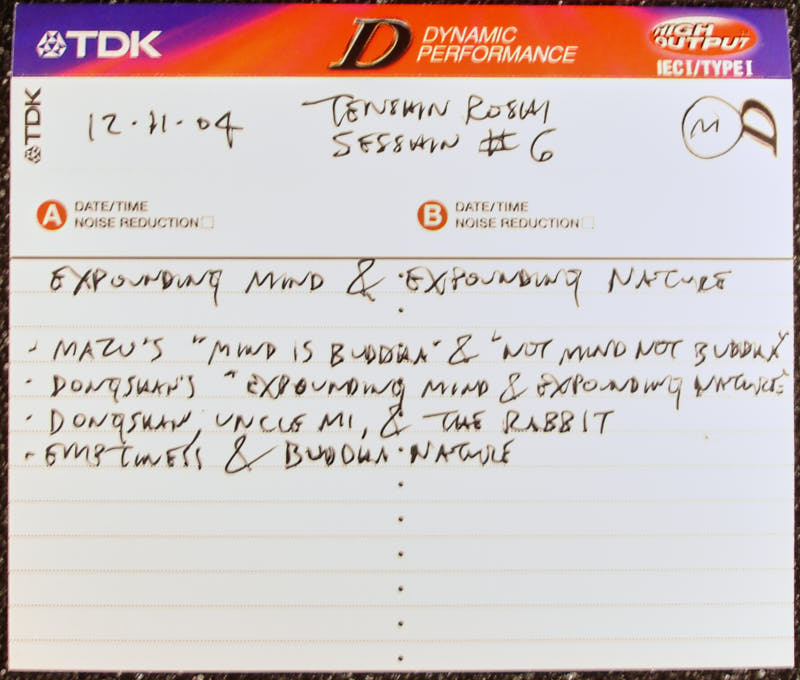 TDK D DYNAMIC PERFORMANCE HIGH OUTPUT
IEC I/TYPE I
TDK
12-11-04 TENSHIN ROSHI
SESSHIN # 6
M D
A DATE/TIME
NOISE REDUCTION
B DATE/TIME
NOISE REDUCTION
EXPOUNDING MIND & EXPOUNDING NATURE
- MAZU'S "MIND IS BUDDHA" & "NOT MIND NOT BUDDHA"
- DONGSHAN'S "EXPOUNDING MIND & EXPOUNDING NATURE"
- DONGSHAN, UNCLE MI, & THE RABBIT
- EMPTINESS & BUDDHA-NATURE